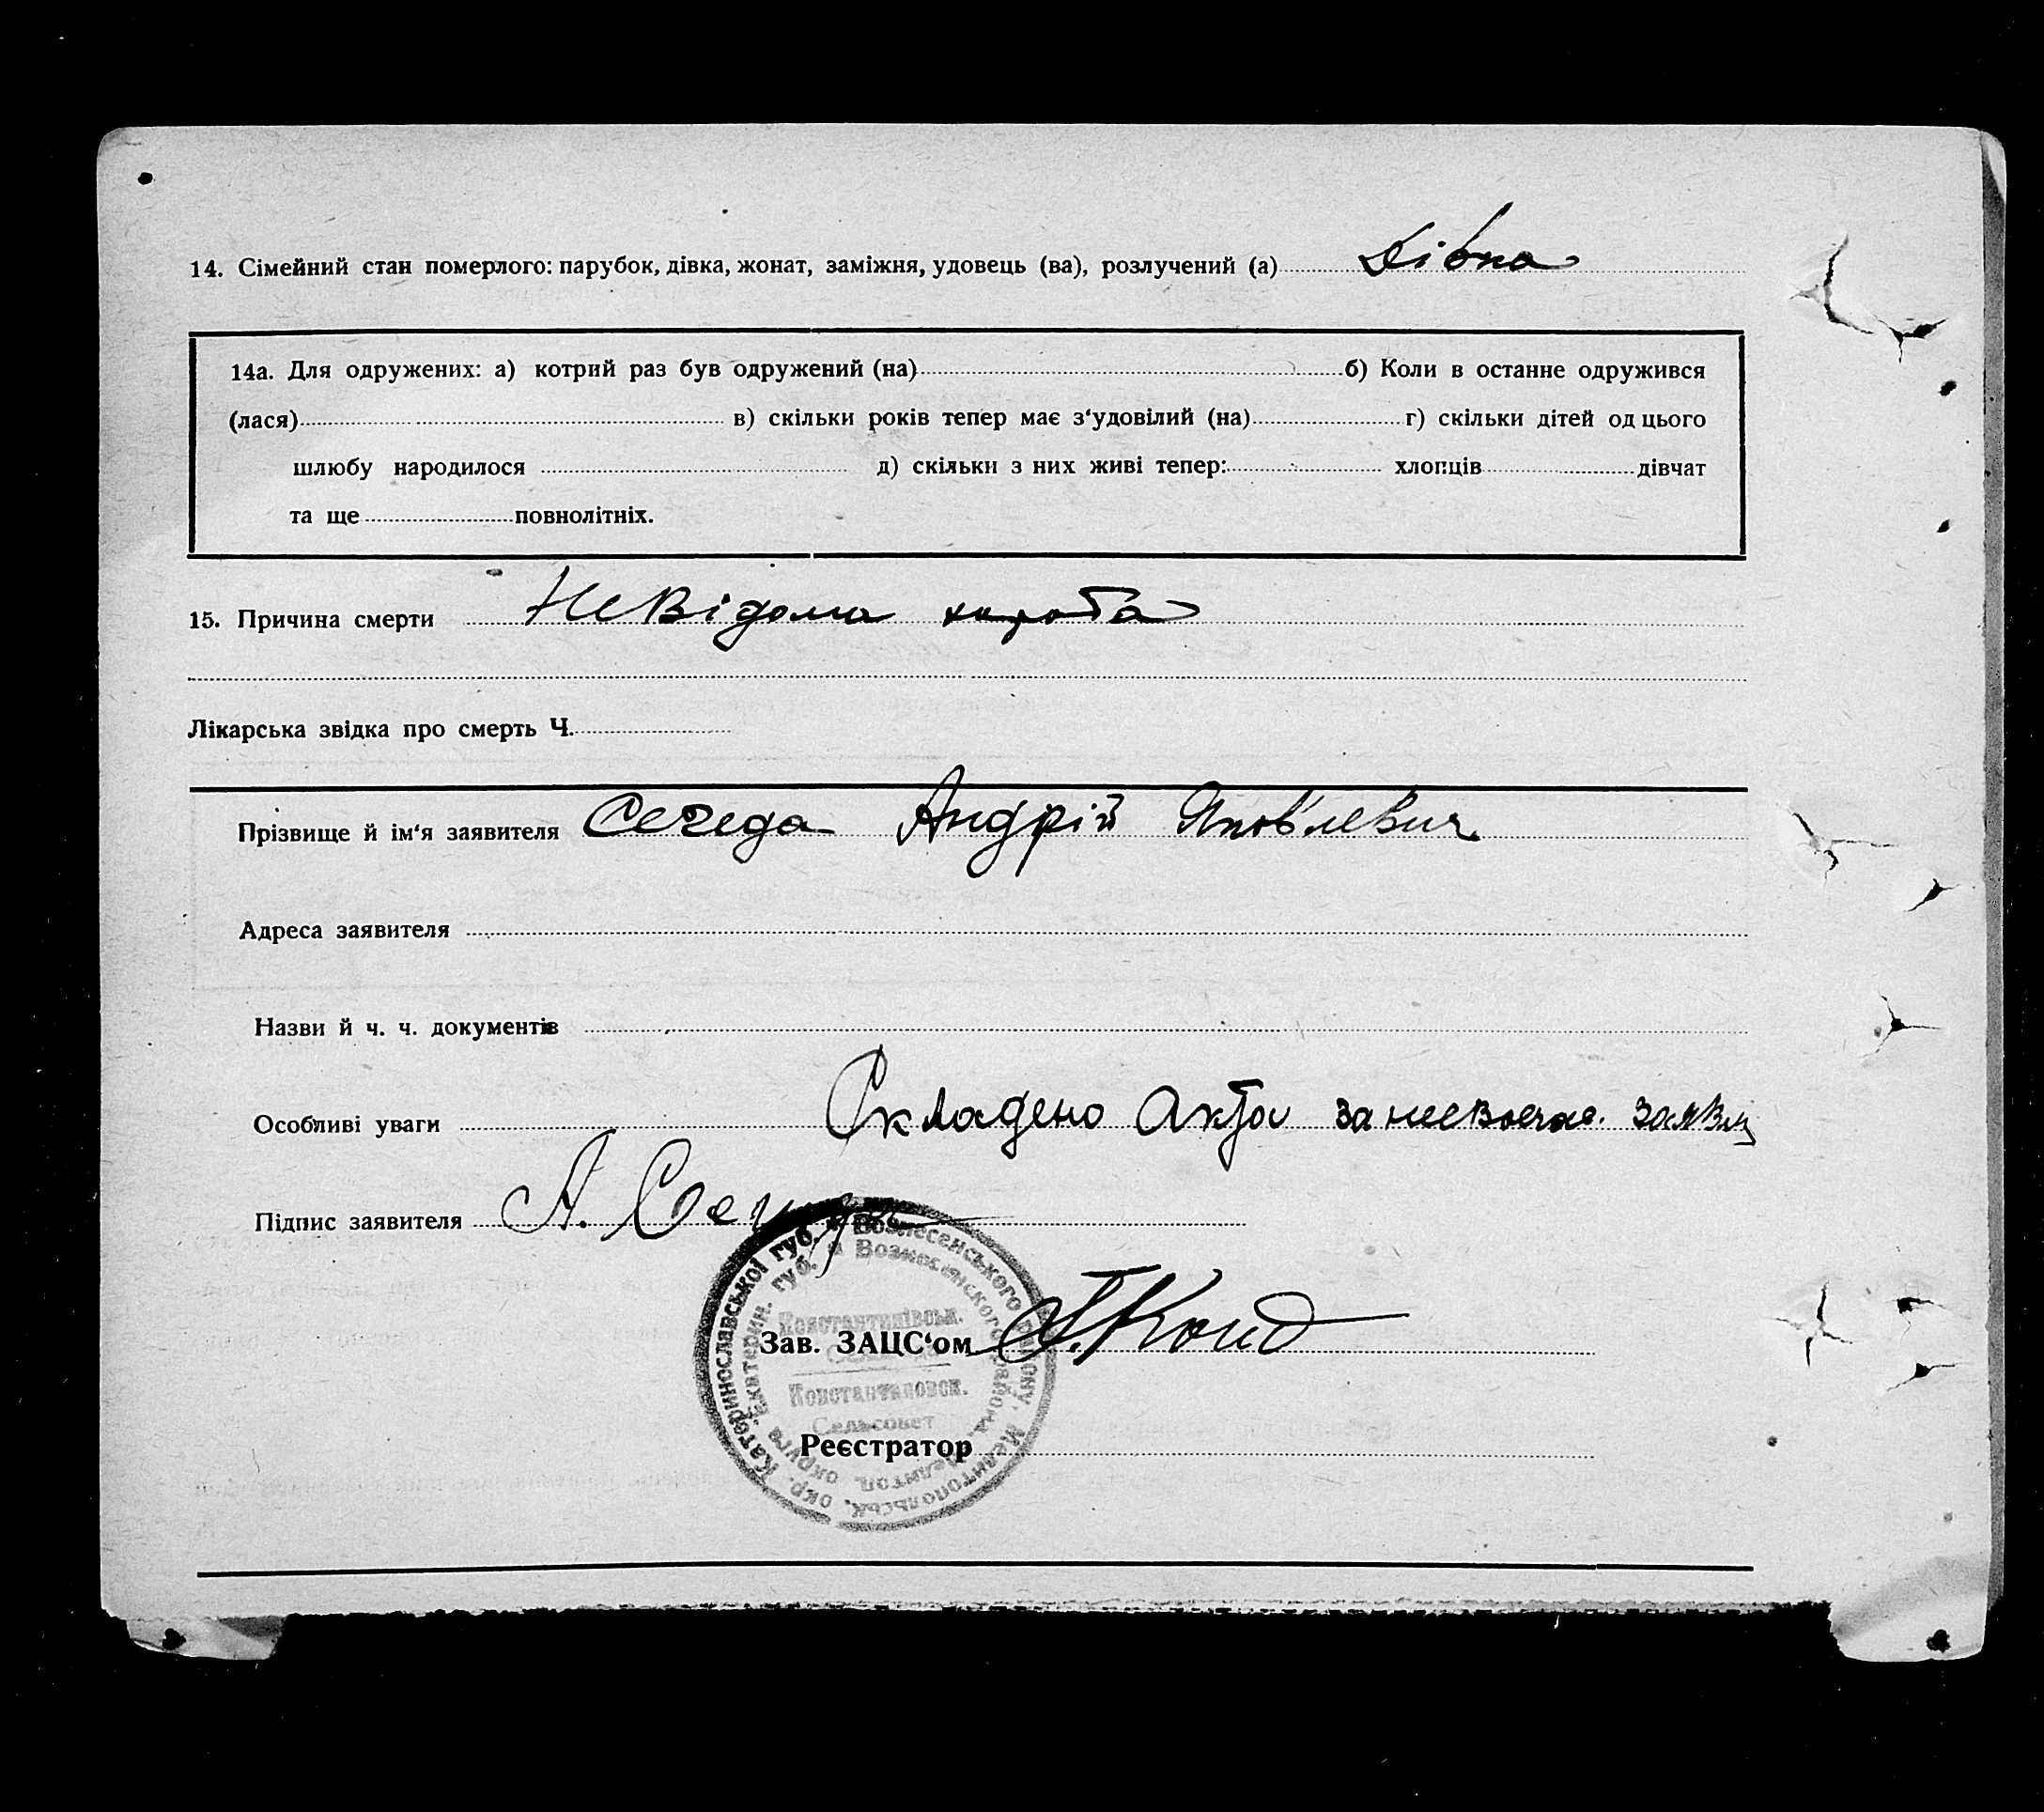 14. Сімейний стан померлого: парубок, дівка, жонат, заміжня, удовець (ва), розлучений (а) Дівка
14а. Для одружених: а) котрий раз був одружений (на) б) Коли в останне одружився
(лася) в) скільки років тепер має з‘удовілий (на) г) скільки дітей од цього
шлюбу народилося д) скільки з них живі тепер: хлопців дівчат
та ще повнолітніх.
15. Причина смерти Невідома хороба
Лікарська звідка про смерть Ч.
Прізвище й ім‘я заявителя Андрій Яковлевич
Адреса заявителя
Назви й ч. ч. документів
Особливі уваги Складено Акта за невчас. заявку
Підпис заявителя А.
Катеринославської губ. Вознесенського району, Мелитопольськ. окр.
Екатерин. губ. Вознесенского района, Мелитоп. округа
Константинівськ.
Зав. ЗАЦС‘ом
Константиновск.
Сельсовет
Реєстратор